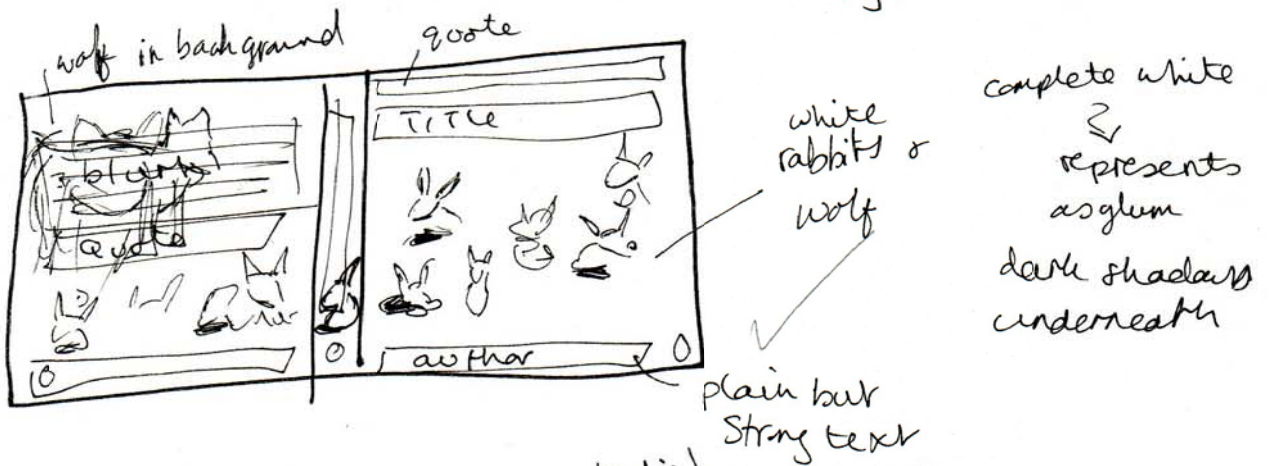 wolf in background
quote
TITLE
blurb
Quote
author
white
rabbits &
wolf
complete white
represents
asylum
dark shadows
underneath
plain but
Strong text